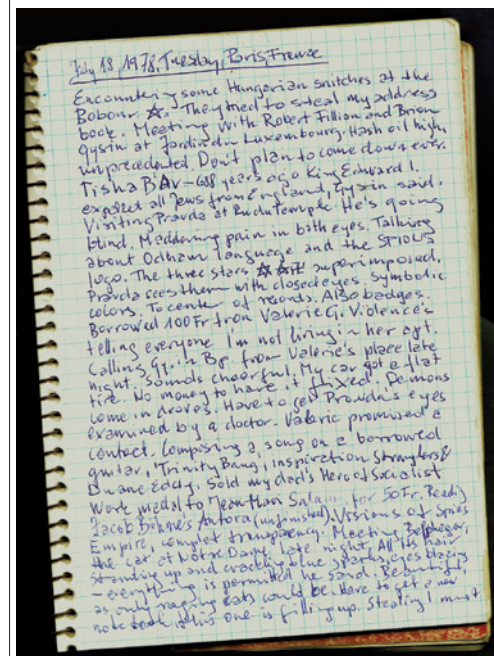 July 18, 1978, Tuesday, Paris, France
Encountering some Hungarian snitches at the
Bobour. They tried to steal my address
book. Meeting with Robert Fillion and Brion
Gysin at Jardin du Luxembourg. Hash oil high,
unprecedented. Don't plan to come down ever.
Tisha B'Av - 688 years ago King Edward I.
expelled all Jews from England, Gysin said.
Visiting Pravda at Rue du Temple. He's going
blind. Maddening pain in both eyes. Talking
about Odham language and the SPIONS
logo. The three stars superimposed.
Pravda sees them with closed eyes. Symbolic
colors. To center of records. Also badges.
Borrowed 100 Fr from Valerie G. Violence's
telling everyone I'm not living in her apt.
Calling Gy. in Bp. from Valerie's place late
night. Sounds cheerful. My car got a flat
tire. No money to have it fixed. Demons
come in droves. Have to get Pravda's eyes
examined by a doctor. Valerie promised a
contact. Composing a song on a borrowed
guitar, "Trinity Bang", inspiration Stranglers &
Duane Eddy. Sold my dad's Hero of Socialist
Work medal to Jean-Mari for 50 Fr. Reading
Jacob Böhme's Aurora (unfinished). Visions of Spions
Empire, complet transparency. Meeting Belphegar,
the cat of Notre Dame, late night. All its hair
standing up and crackling blue sparks, eyes blazing
- everything is permitted he said. Beautiful,
as only raging cats could be. Have to get a new
notebook, this one is filling up. Stealing I must